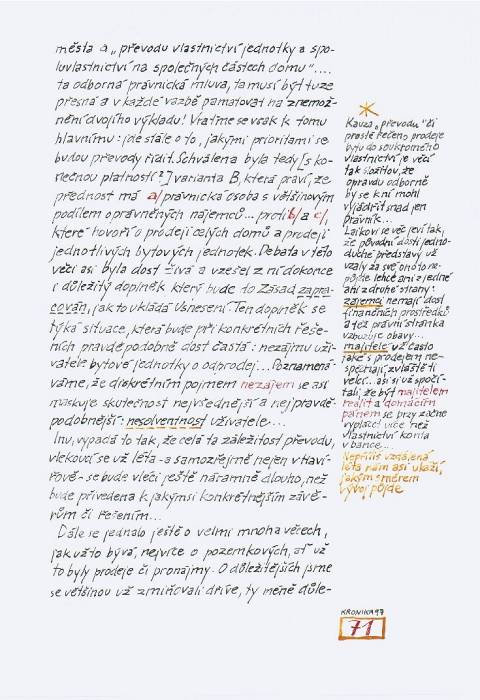 města a „převodu vlastnictví jednotky a spo-
luvlastnictví na společných částech domu"....
ta odborná právnická mluva, ta musí být tuze
přesná a v každé vazbě pamatovat na znemož-
nění dvojího výkladu! Vraťme se však k tomu
hlavnímu: jde stále o to, jakými prioritami se
budou převody řídit. Schválena byla tedy [s ko-
nečnou platností?] varianta B, která praví, že
přednost má a/ právnická osoba s většinovým
podílem oprávněných nájemců... proti b/ a c/,
které hovoří o prodeji celých domů a prodeji
jednotlivých bytových jednotek. Debata v této
věci asi byla dost živá a vzešel z ní dokonce
i důležitý doplněk který bude do Zásad zapra-
cován, jak to ukládá Usnesení. Ten doplněk se
týká situace, která bude při konkrétních řeše-
ních pravděpodobně dost častá: nezájmu uži-
vatele bytové jednotky o odprodej... Poznamená-
váme, že diskrétním pojmem nezájem se asi
maskuje skutečnost nejvšednější a nejpravdě-
podobnější: nesolventnost uživatele...
Inu, vypadá to tak, že celá ta záležitost převodu,
vlekoucí se už léta - a samozřejmě nejen v Haví-
řově - se bude vléci ještě náramně dlouho, než
bude přivedena k jakýmsi konkrétnějším závě-
rům či řešením...
Dále se jednalo ještě o velmi mnoha věcech,
jak už to bývá, nejvíce o pozemkových, ať už
to byly prodeje či pronájmy. O důležitějších jsme
se většinou už zmiňovali dříve, ty méně důle-
Kauza „převodu" či
prostě řečeno prodeje
bytu do soukromého
vlastnictví je věcí
tak složitou, že
opravdu odborně
by se k ní mohl
vyjádřit snad jen
právník...
Laikovi se věc jeví tak,
že původní dosti jedno-
duché představy už
vzaly za své, ono to ne-
půjde lehce ani z jedné
ani z druhé strany:
zájemci nemají dost
finančních prostředků
a též právní stránka
vzbuzuje obavy...
majitelé už často
také s prodejem ne-
spěchají, zvláště ti
velcí... asi si už spočí-
tali, že být majitelem
realit a domácím
pánem se brzy začne
vyplácet více než
vlastnictví konta
v bance...
Nepříliš vzdálená
léta nám asi ukáží,
jakým směrem
vývoj půjde
KRONIKA 97
71